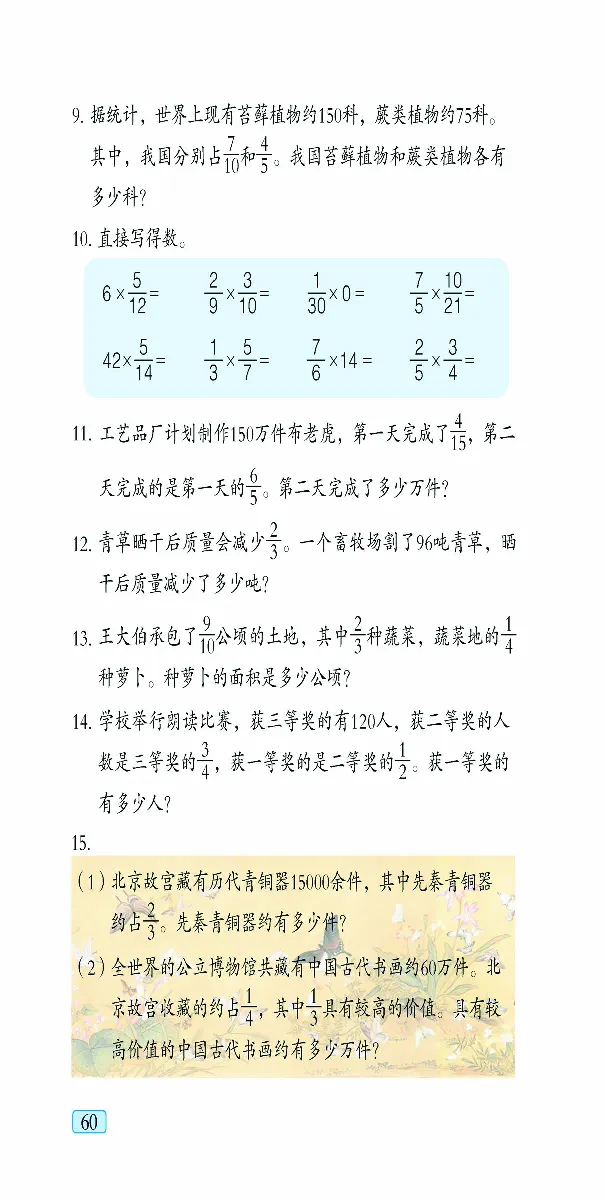 9. 据统计，世界上现有苔藓植物约150科，蕨类植物约75科。
其中，我国分别占7/10和4/5。我国苔藓植物和蕨类植物各有
多少科？
10. 直接写得数。
6×5/12= 2/9×3/10= 1/30×0= 7/5×10/21=
42×5/14= 1/3×5/7= 7/6×14= 2/5×3/4=
11. 工艺品厂计划制作150万件布老虎，第一天完成了4/15，第二
天完成的是第一天的6/5。第二天完成了多少万件？
12. 青草晒干后质量会减少2/3。一个畜牧场割了96吨青草，晒
干后质量减少了多少吨？
13. 王大伯承包了9/10公顷的土地，其中2/3种蔬菜，蔬菜地的1/4
种萝卜。种萝卜的面积是多少公顷？
14. 学校举行朗读比赛，获三等奖的有120人，获二等奖的人
数是三等奖的3/4，获一等奖的是二等奖的1/2。获一等奖的
有多少人？
15.
（1）北京故宫藏有历代青铜器15000余件，其中先秦青铜器
约占2/3。先秦青铜器约有多少件？
（2）全世界的公立博物馆共藏有中国古代书画约60万件。北
京故宫收藏的约占1/4，其中1/3具有较高的价值。具有较
高价值的中国古代书画约有多少万件？
60